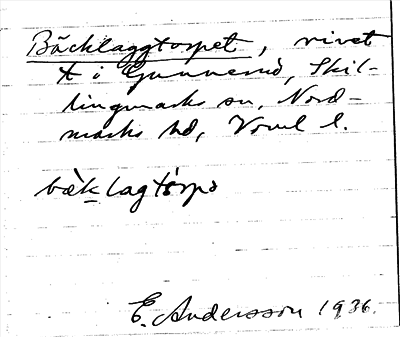 Bäcklaggtorpet, rivet
t i Gunnerud, Skil-
lingmarks sn, Nord-
marks hd, Vrml l.
bæ̀klagtòrpə
E. Andersson 1936.